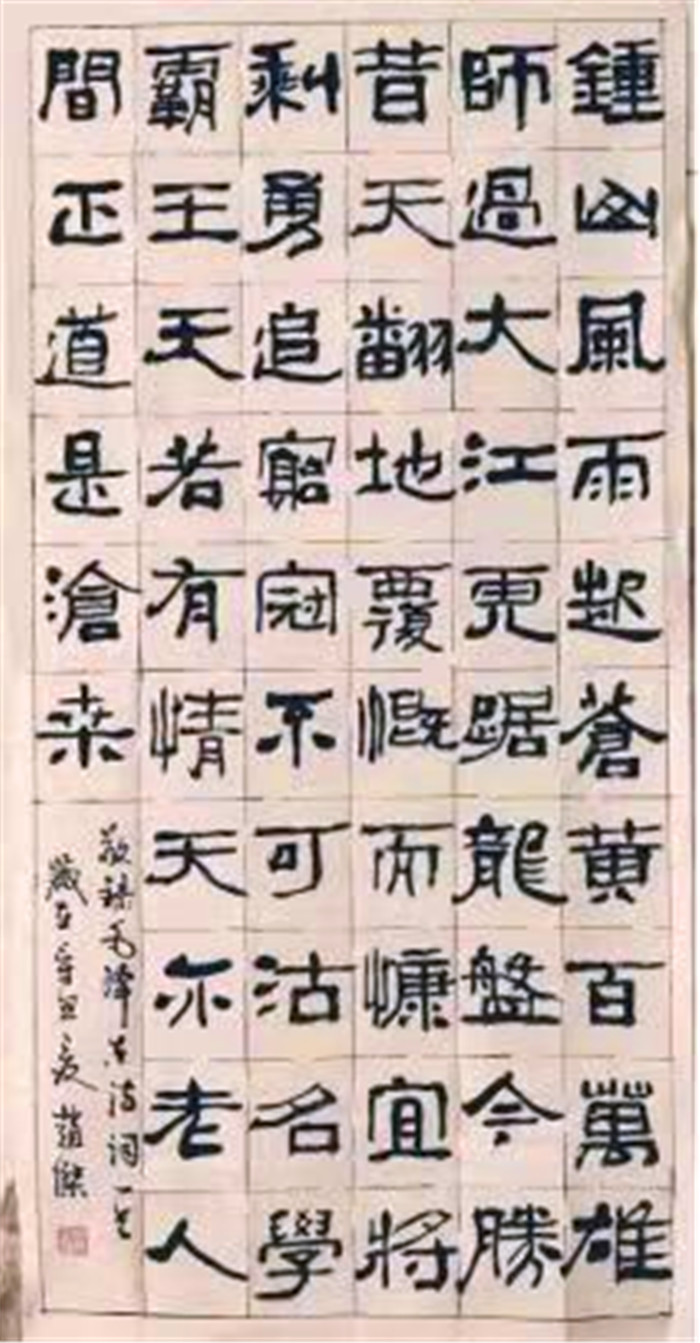 鍾山風雨起蒼黄百萬雄
師過大江虎踞龍盤今勝
昔天翻地覆慨而慷宜將
剩勇追窮寇不可沽名學
霸王天若有情天亦老人
間正道是滄桒
敬錄毛澤东诗词一首
歲在辛丑夏 傑